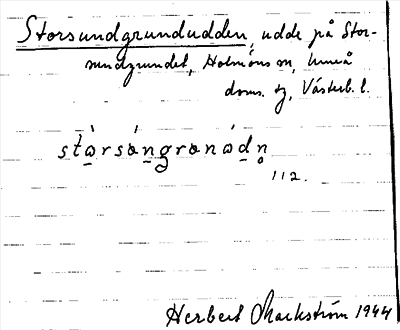 Storsundgrundudden, udde på Stor-
sundgrundet, Holmöns sn, Umeå
doms. tg, Västerb. l.
stårsångrənadn
112.
Herbert Markström 1944